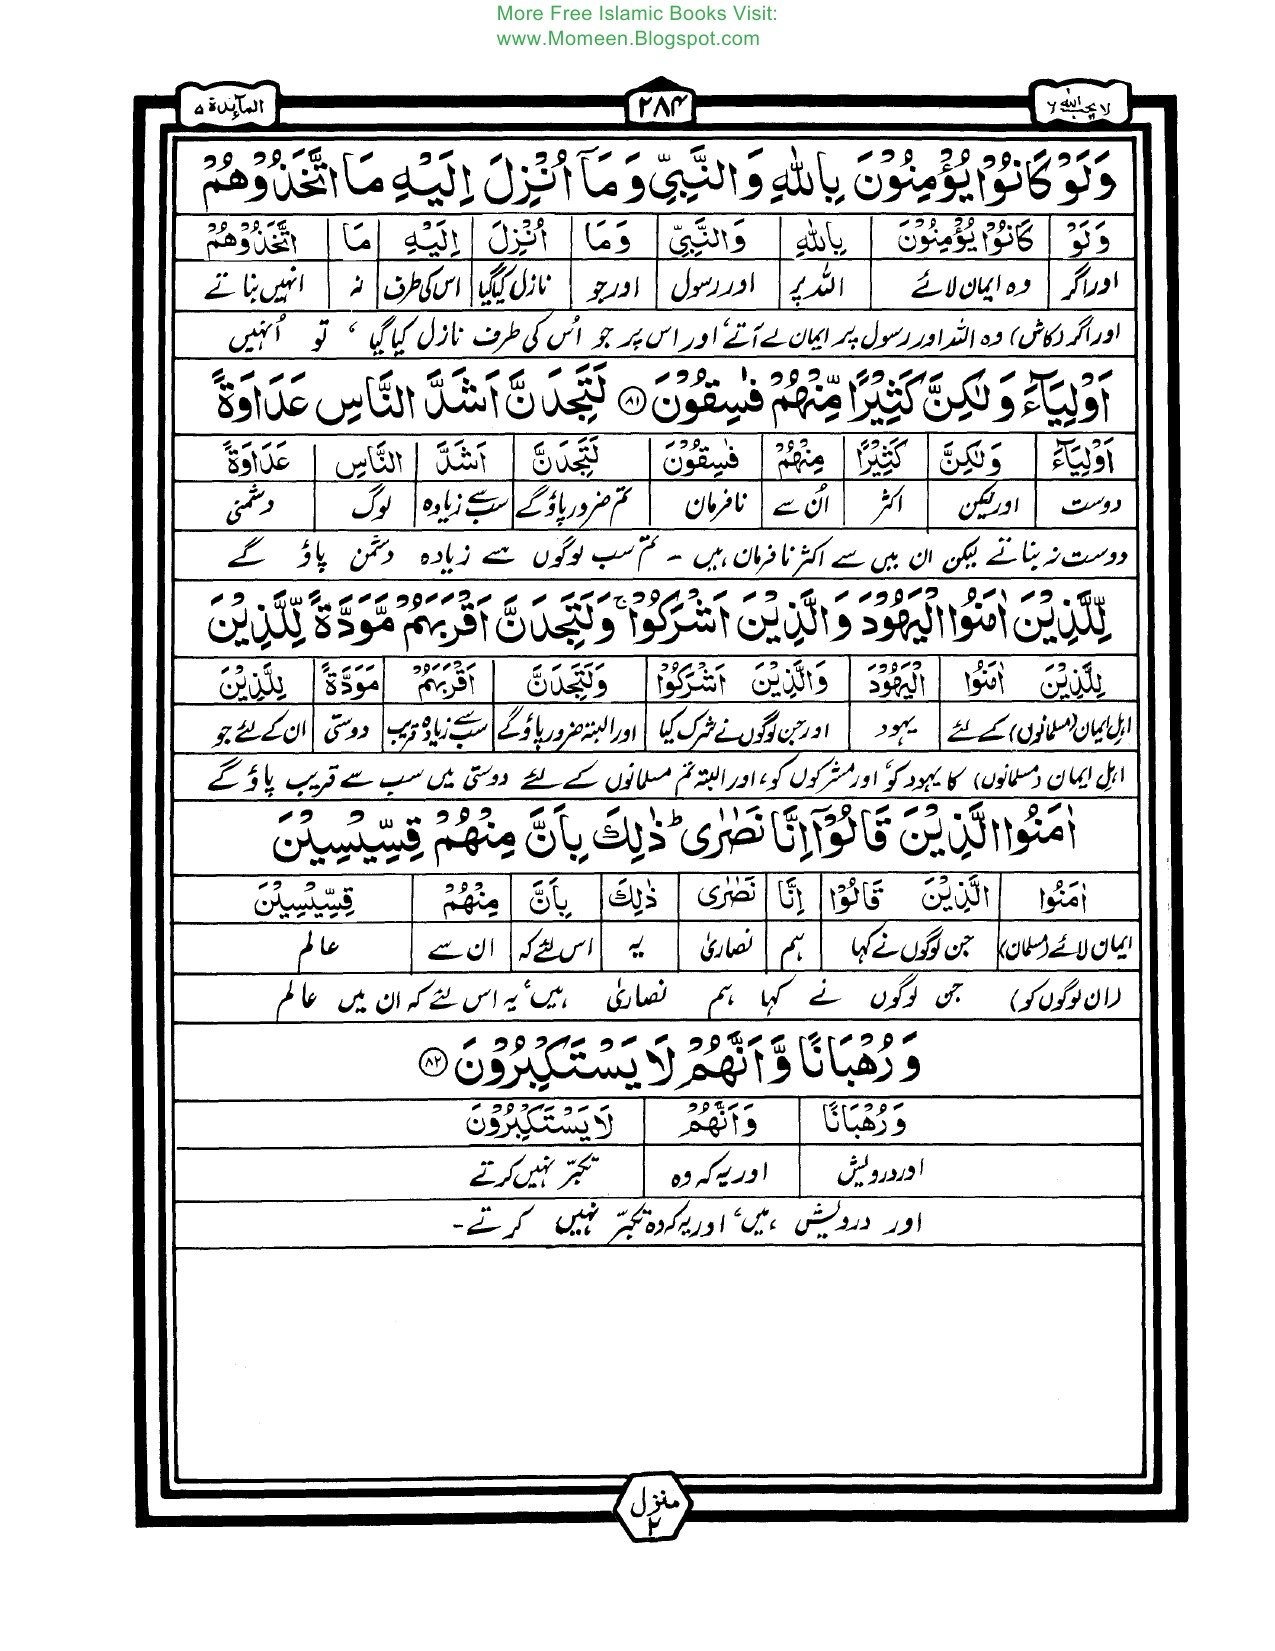 More Free Islamic Books Visit:
www.Momeen.Blogspot.com
لا یحب اللہ ۶ ۲۸۴ المآىِٕدة ۵
وَلَوْ كَانُوْا يُؤْمِنُوْنَ بِاللّٰهِ وَالنَّبِيِّ وَمَآ اُنْزِلَ اِلَيْهِ مَا اتَّخَذُوْهُمْ
وَلَوْ كَانُوْا يُؤْمِنُوْنَ بِاللّٰهِ وَالنَّبِيِّ وَمَا اُنْزِلَ اِلَيْهِ مَا اتَّخَذُوْهُمْ
اور اگر وہ ایمان لائے اللہ پر اور رسول اور جو نازل کیا گیا اس کی طرف نہ انہیں بناتے
اور اگر (کاش) وہ اللہ اور رسول پر ایمان لے آتے، اور اس پر جو اُس کی طرف نازل کیا گیا، تو اُنہیں
اَوْلِيَآءَ وَلٰكِنَّ كَثِيْرًا مِّنْهُمْ فٰسِقُوْنَ ۸۱ لَتَجِدَنَّ اَشَدَّ النَّاسِ عَدَاوَةً
اَوْلِيَآءَ وَلٰكِنَّ كَثِيْرًا مِنْهُمْ فٰسِقُوْنَ لَتَجِدَنَّ اَشَدَّ النَّاسِ عَدَاوَةً
دوست اور لیکن اکثر اُن سے نافرمان تم ضرور پاؤ گے سب سے زیادہ لوگ دشمنی
دوست نہ بناتے لیکن ان میں سے اکثر نافرمان ہیں - تم سب لوگوں سے زیادہ دشمن پاؤ گے
لِّلَّذِيْنَ اٰمَنُوا الْيَهُوْدَ وَالَّذِيْنَ اَشْرَكُوْا ۚ وَلَتَجِدَنَّ اَقْرَبَهُمْ مَّوَدَّةً لِّلَّذِيْنَ
لِلَّذِيْنَ اٰمَنُوا الْيَهُوْدَ وَالَّذِيْنَ اَشْرَكُوْا وَلَتَجِدَنَّ اَقْرَبَهُمْ مَوَدَّةً لِلَّذِيْنَ
اہل ایمان (مسلمانوں) کے لئے یہود اور جن لوگوں نے شرک کیا اور البتہ ضرور پاؤ گے سب سے زیادہ قریب دوستی ان کے لئے جو
اہل ایمان (مسلمانوں) کا یہود کو، اور مشرکوں کو، اور البتہ تم مسلمانوں کے لئے دوستی میں سب سے قریب پاؤ گے
اٰمَنُوا الَّذِيْنَ قَالُوْٓا اِنَّا نَصٰرٰى ؕ ذٰلِكَ بِاَنَّ مِنْهُمْ قِسِّيْسِيْنَ
اٰمَنُوا الَّذِيْنَ قَالُوْا اِنَّا نَصٰرٰى ذٰلِكَ بِاَنَّ مِنْهُمْ قِسِّيْسِيْنَ
ایمان لائے (مسلمان) جن لوگوں نے کہا ہم نصاریٰ یہ اس لئے کہ ان سے عالم
(ان لوگوں کو) جن لوگوں نے کہا ہم نصاریٰ ہیں، یہ اس لئے کہ ان میں عالم
وَرُهْبَانًا وَّاَنَّهُمْ لَا يَسْتَكْبِرُوْنَ ۸۲
وَرُهْبَانًا وَاَنَّهُمْ لَا يَسْتَكْبِرُوْنَ
اور درویش اور یہ کہ وہ تکبّر نہیں کرتے
اور درویش ہیں، اور یہ کہ وہ تکبّر نہیں کرتے-
منزل
۲